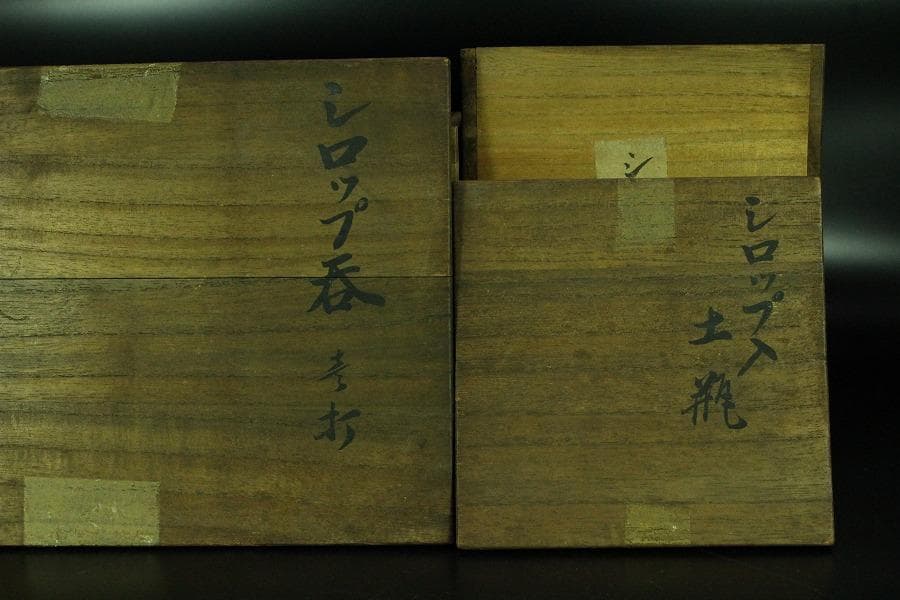 シロップ呑 壱打
シ
シロップ入
土瓶